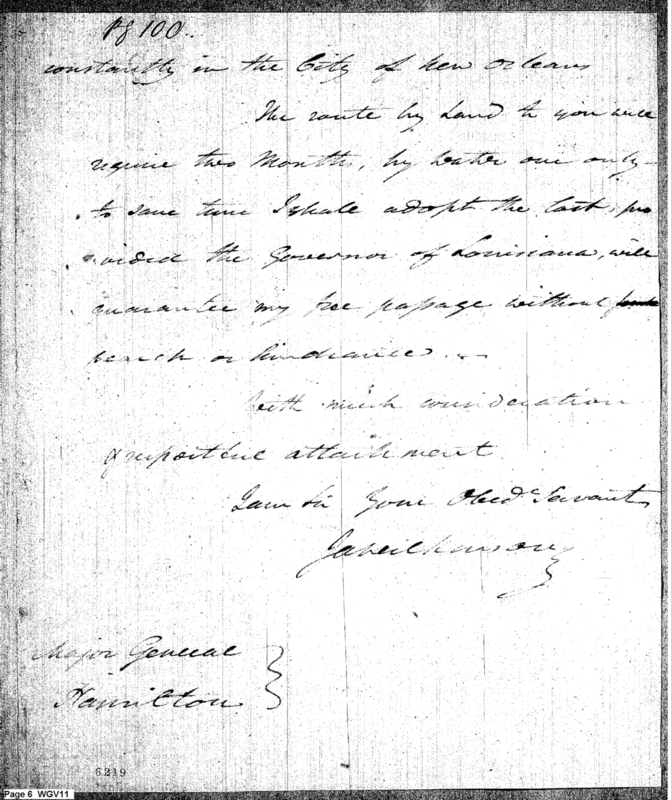 Pg 100.
constantly in the City of New Orleans
The route by Land to you will
require two Months, by Water one only—
to save time I shall adopt the last, pro
vided the Governor of Louisiana, will
guarantee my free passage without
search or hindrance.
With much consideration
& respectful attachment
I am Sir Your Obed Servant
Ja Wilkinson
Major General
Hamilton
6219
Page 6 WGV11